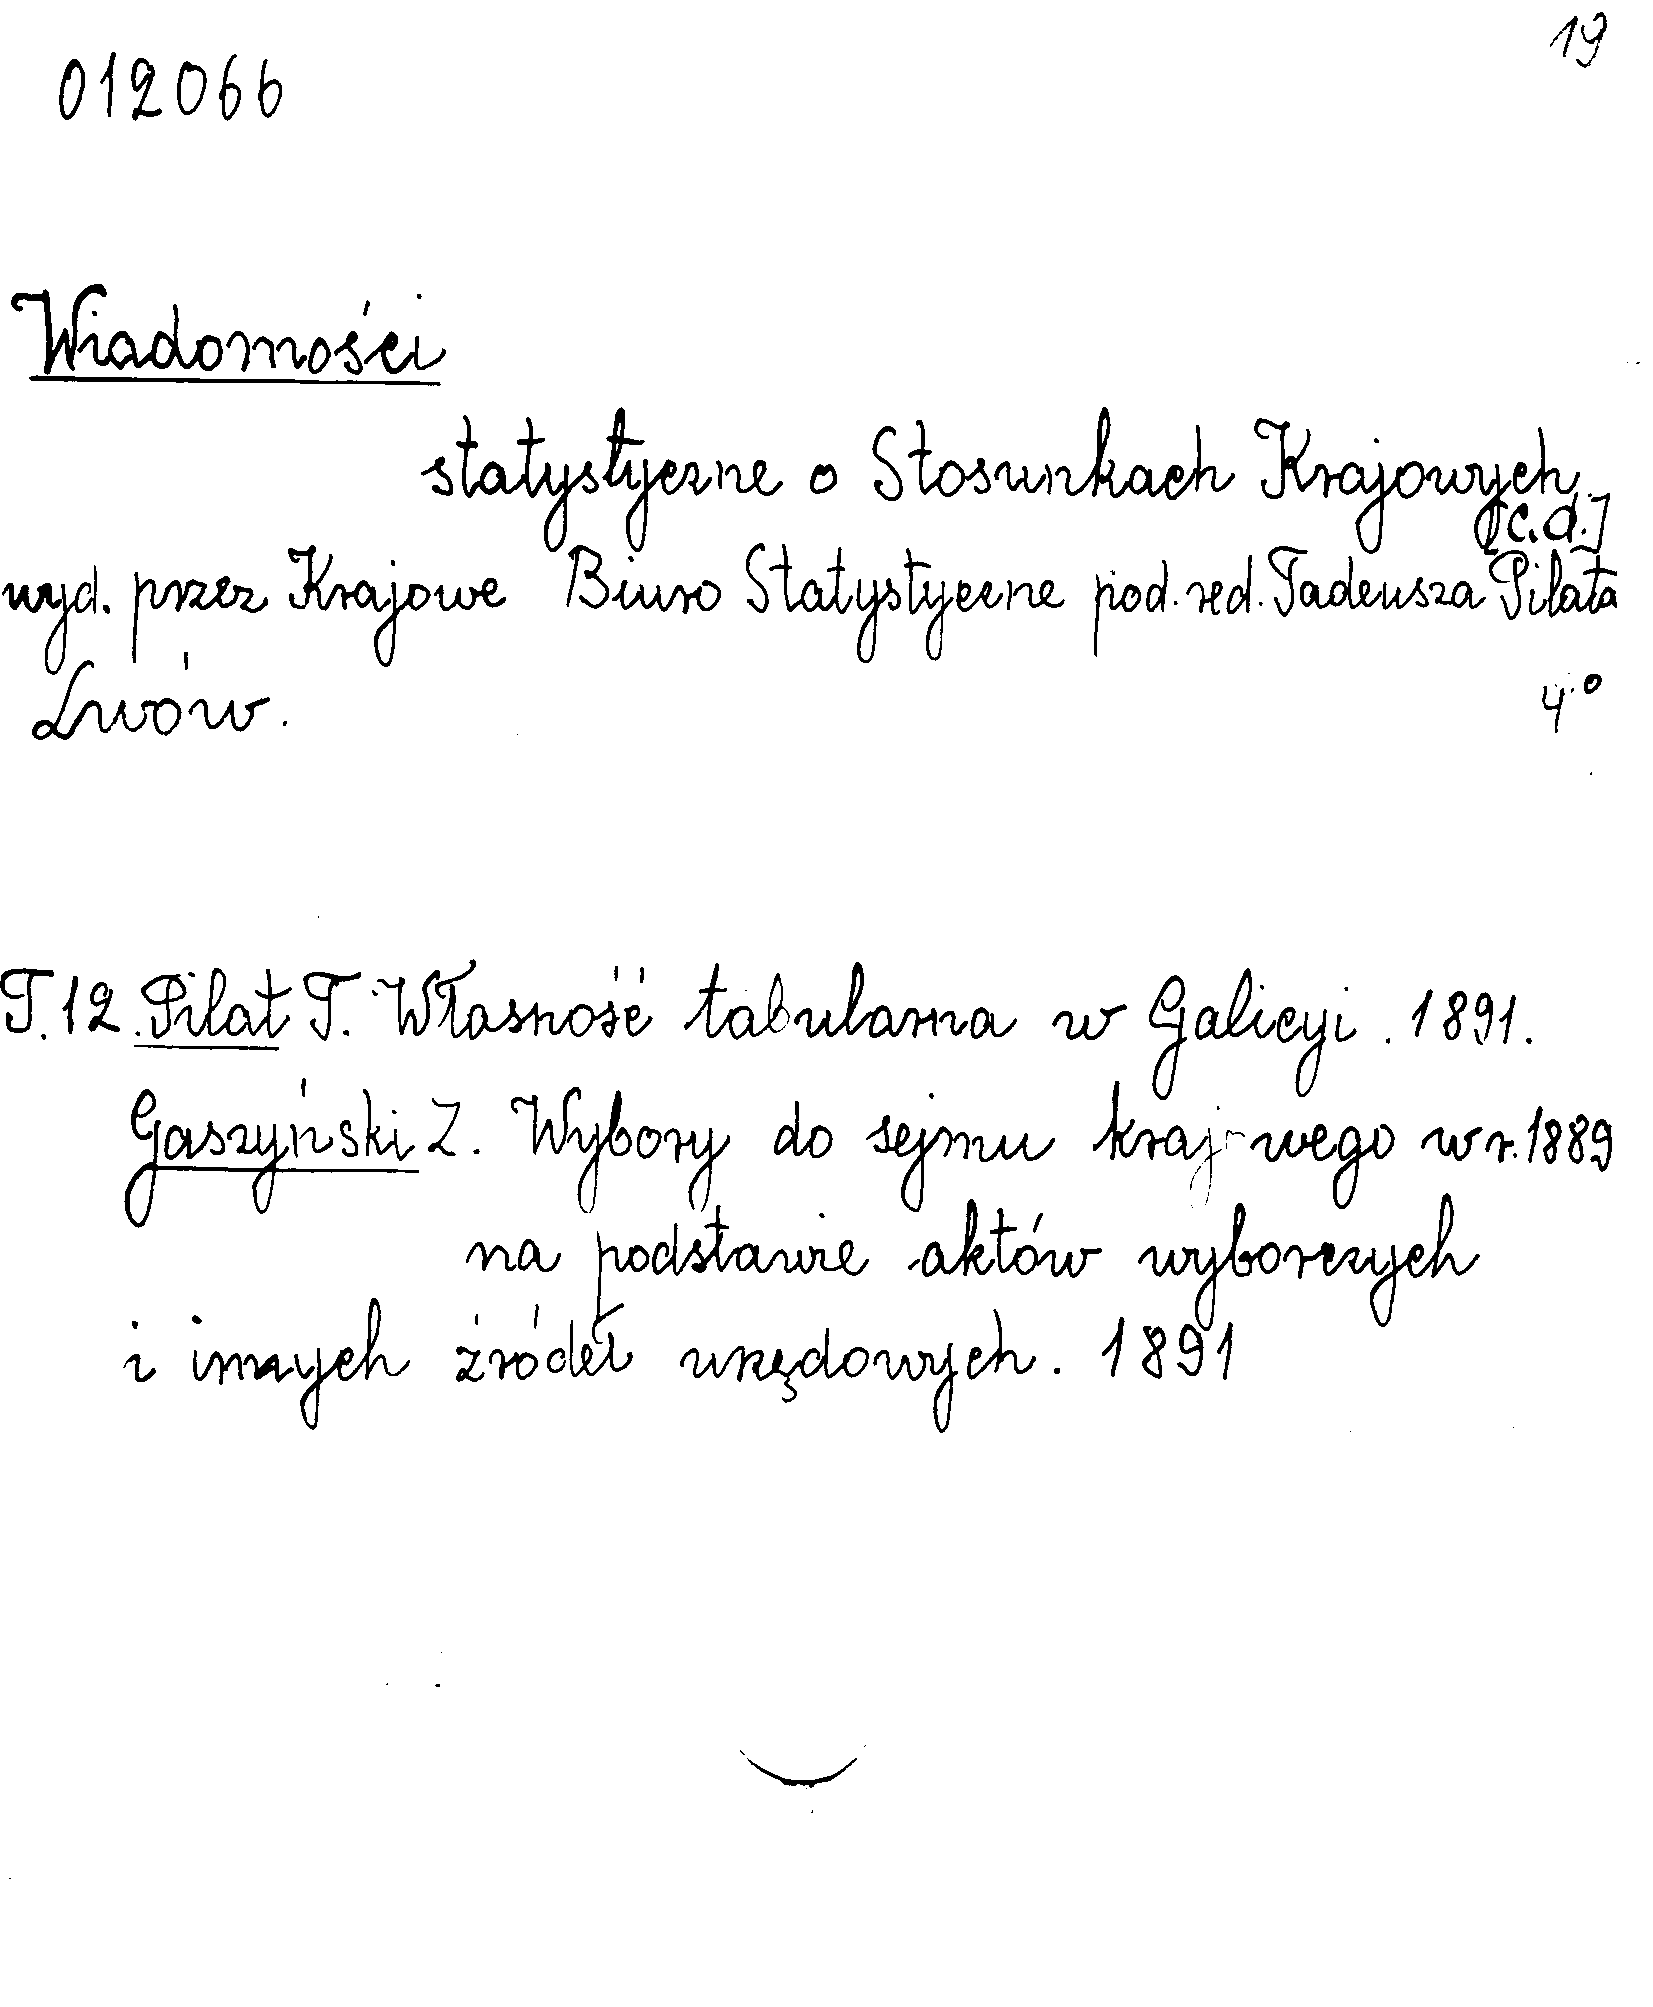 19
012066
Wiadomości
statystyczne o Stosunkach Krajowych
[c.d.]
wyd. przez Krajowe Biuro Statystyczne pod. red. Tadeusza Pilata
Lwów. 4°
T.12. Pilat T. Własność tabularna w Galicyi. 1891.
Gaszyński Z. Wybory do sejmu krajowego w r. 1889
na podstawie aktów wyborczych
i innych źródeł urzędowych. 1891